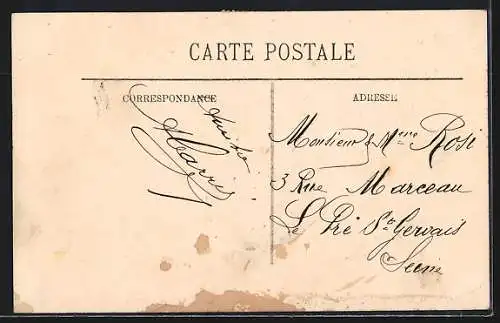 CARTE POSTALE
CORRESPONDANCE
ADRESSE
Monsieur & Mme Rosi
3 Rue Marceau
Le Pré St Gervais
Seine